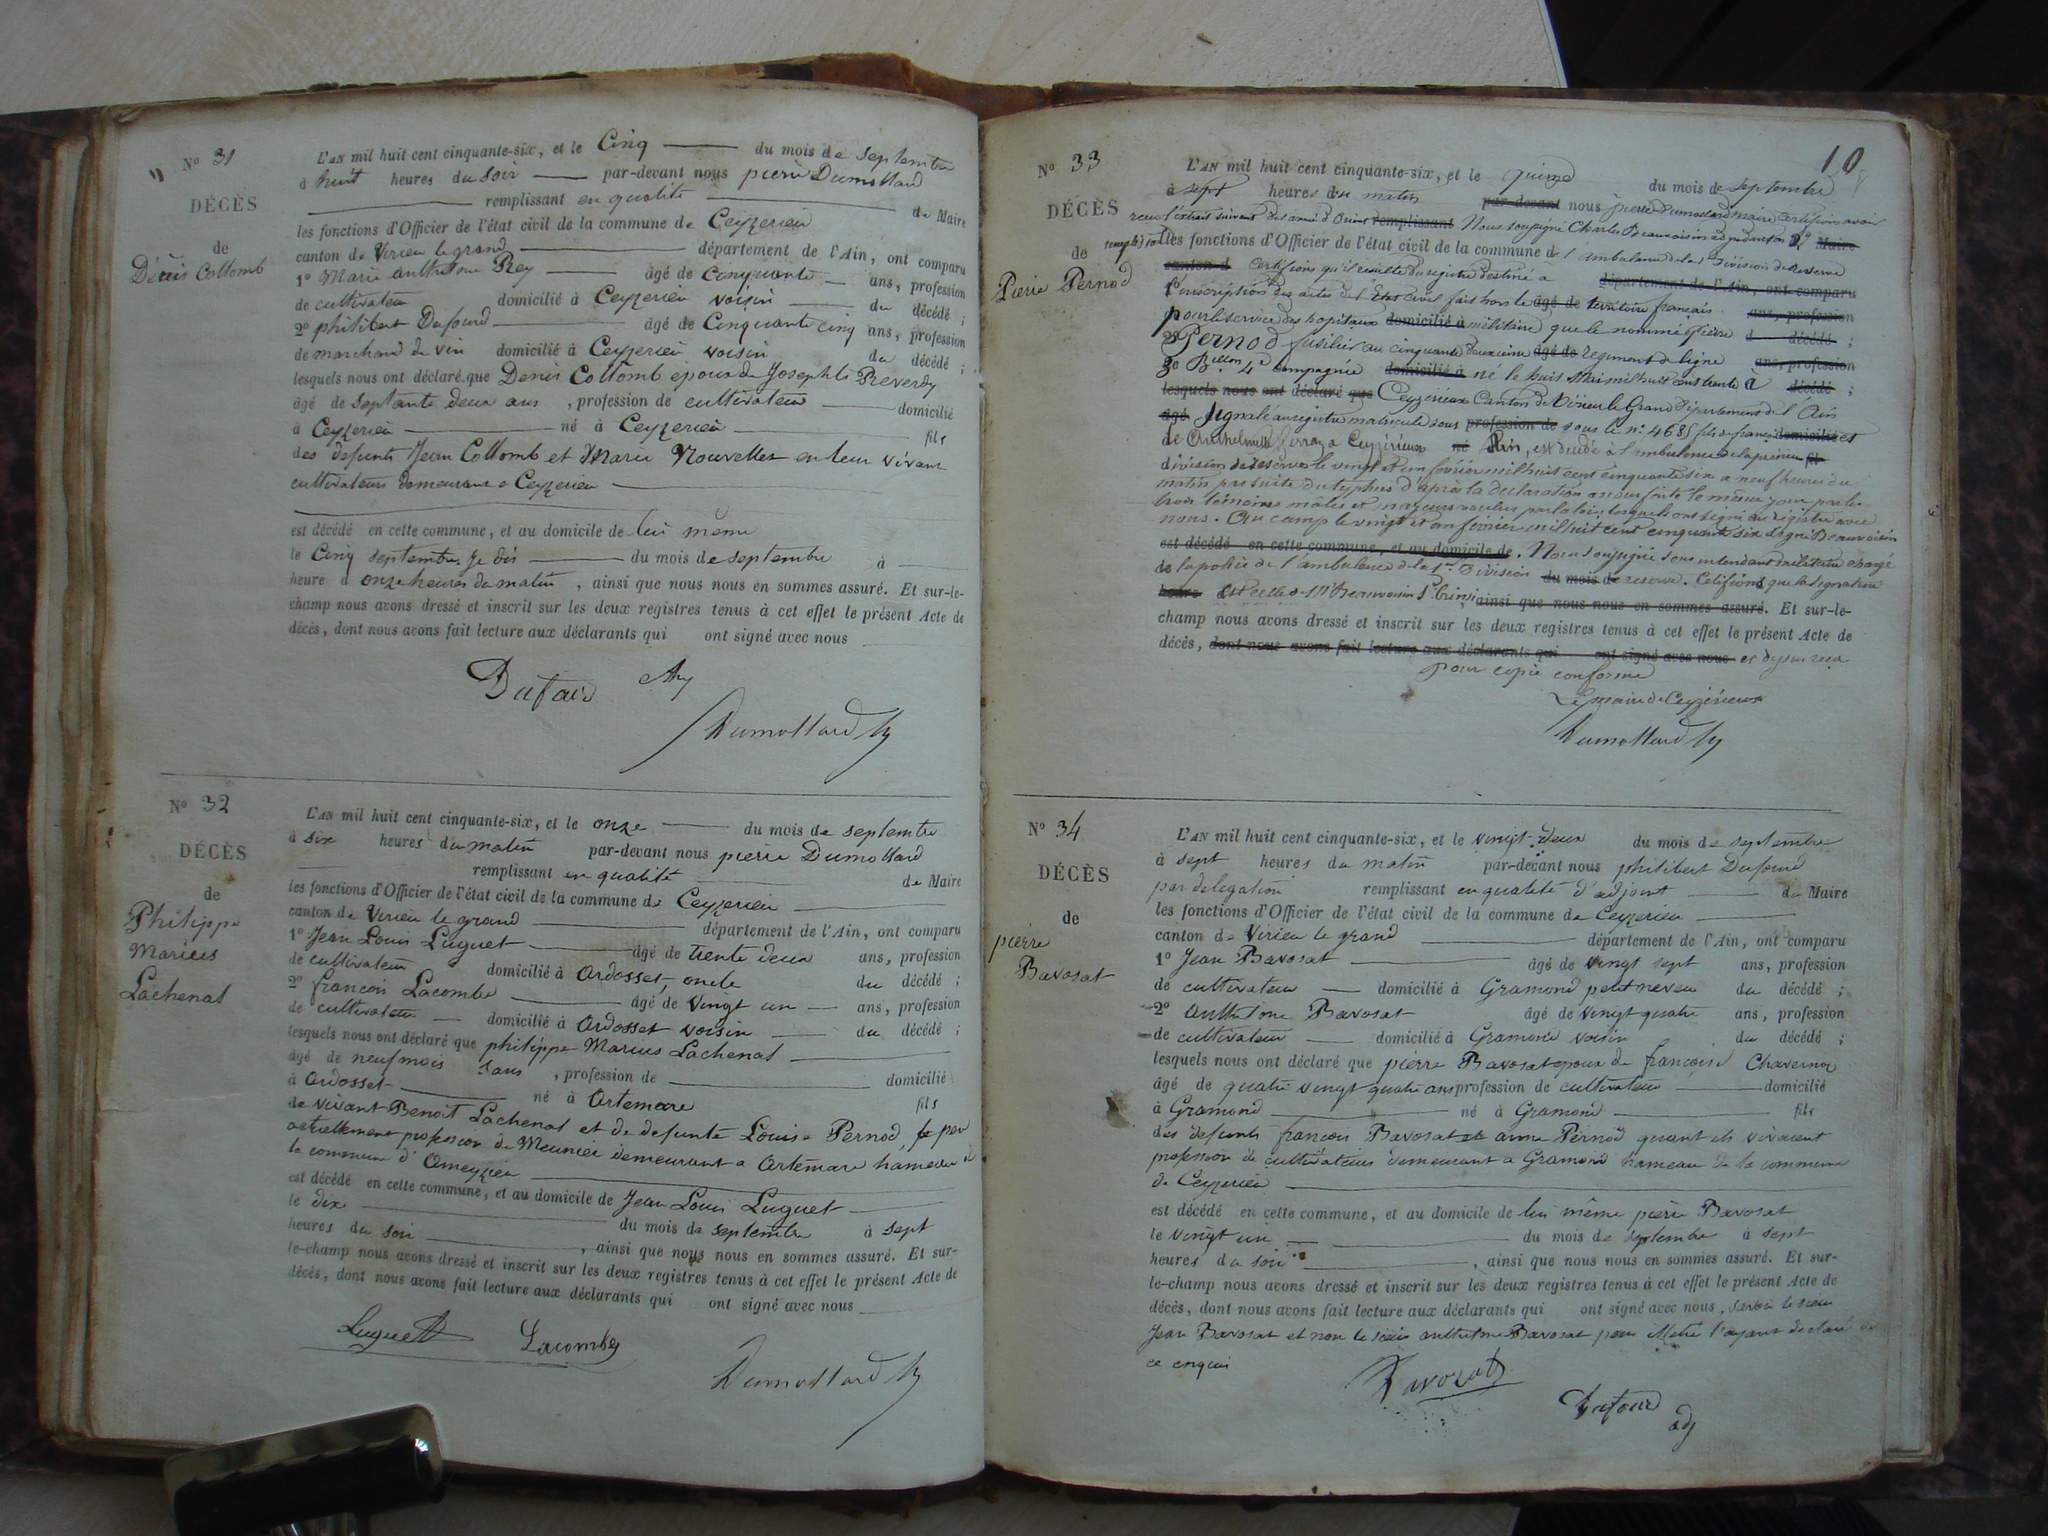 N° 31
DÉCÈS
de
Dénis Collomb
L'AN mil huit cent cinquante-six, et le Cinq du mois de septembre
à huit heures du soir par-devant nous pierre Dumollard
remplissant en qualité de Maire
les fonctions d'Officier de l'état civil de la commune de Ceyzerieu
canton de Virieu le grand département de l'Ain, ont comparu
1° Marie anthelme Rey âgé de Cinquante ans, profession
de cultivateur domicilié à Ceyzerieu voisin du décédé ;
2° philibert Dufourd âgé de Cinquante cinq ans, profession
de marchand de vin domicilié à Ceyzerieu voisin du décédé ;
lesquels nous ont déclaré que Denis Collomb epoux de Josephte Reverdy
âgé de septante deux ans , profession de cultivateur domicilié
à Ceyzerieu né à Ceyzerieu fils
des defunts Jean Collomb et Marie Nouvellet en leur vivant
cultivateurs demeurant a Ceyzerieu
est décédé en cette commune, et au domicile de lui même
le Cinq septembre je dis du mois de septembre à
heure à onze heures du matin , ainsi que nous nous en sommes assuré. Et sur-le-
champ nous avons dressé et inscrit sur les deux registres tenus à cet effet le présent Acte de
décès, dont nous avons fait lecture aux déclarants qui ont signé avec nous
Dufourd Rey
Dumollard
N° 32
DÉCÈS
de
Philippe
Marius
Lachenal
L'AN mil huit cent cinquante-six, et le onze du mois de septembre
à six heures du matin par-devant nous pierre Dumollard
remplissant en qualité de Maire
les fonctions d'Officier de l'état civil de la commune de Ceyzerieu
canton de Virieu le grand département de l'Ain, ont comparu
1° Jean Louis Luguet âgé de trente deux ans, profession
de cultivateur domicilié à Ardosset, oncle du décédé ;
2° françois Lacombe âgé de vingt un ans, profession
de cultivateur domicilié à Ardosset voisin du décédé ;
lesquels nous ont déclaré que philippe Marius Lachenal
âgé de neuf mois sans , profession de domicilié
à Ardosset né à Artemare fils
de vivant Benoit Lachenal et de defunte Louise Pernod, le per
actuellement profession de Meunier demeurant a Artemare hameau de
la commune d'Ameyzieu
est décédé en cette commune, et au domicile de Jean Louis Luguet
le dix du mois de septembre à sept
heures du soir , ainsi que nous nous en sommes assuré. Et sur-
le-champ nous avons dressé et inscrit sur les deux registres tenus à cet effet le présent Acte de
décès, dont nous avons fait lecture aux déclarants qui ont signé avec nous
Luguet Lacombe
Dumollard
10
N° 33
DÉCÈS
de
Pierre Pernod
L'AN mil huit cent cinquante-six, et le quinze du mois de septembre
à sept heures du matin par-devant nous pierre Dumollard maire certifions avoir
recu l'extrait suivant des armé d'Orient remplissant Nous soussigné Charles Beauvoisin Maire
les fonctions d'Officier de l'état civil de la commune de l'ambulance de la 1e Division de Reserve
canton d Certifions qu'il resulte du registre destiné a département de l'Ain, ont comparu
l'inscription des actes de l'Etat Civil fait hors le âgé de territoire français ans, profession
pour le service des hopitaux domicilié à militaire que le nommé Pierre d décédé ;
2° Pernod fusilier au cinquante deuxieme âgé de regiment de ligne ans, profession
3e Bllon 4e compagnie domicilié à né le huit Mai mil huit cent trente à décédé ;
lesquels nous ont déclaré que Ceyzérieux Canton de Virieu le Grand Département de l'Ain
âgé Signalé au registre matricule sous profession de sous le n° 4685 fils de françois domicilié et
de né Ain, est decedé à l'ambulance de la premiere fil
division de reserve le vingt et un février mil huit cent cinquante six a neuf heures du
matin par suite du typhus d'après la declaration a nous faite le même jour par les
trois témoins mâles et majeurs voulus par la loi, lesquels ont signé au registre avec
nous. Au camp le vingt et un février mil huit cent cinquante six signé Beauvoisin
est décédé en cette commune, et au domicile de. Nous soussigné sous intendant militaire chargé
de la police de l'ambulance de la 1re Division du mois de reserve. Certifions que la signature
heure est celle de Mr Beauvoisin ainsi que nous nous en sommes assuré. Et sur-le-
champ nous avons dressé et inscrit sur les deux registres tenus à cet effet le présent Acte de
décès, dont nous avons fait lecture aux déclarants qui ont signé avec nous
pour copie conforme
Le maire de Ceyzérieux
Dumollard
N° 34
DÉCÈS
de
pierre
Bavosat
L'AN mil huit cent cinquante-six, et le vingt-deux du mois de septembre
à sept heures du matin par-devant nous philibert Dufourd
par delegation remplissant en qualité d'adjoint du Maire
les fonctions d'Officier de l'état civil de la commune de Ceyzerieu
canton de Virieu le grand département de l'Ain, ont comparu
1° Jean Bavosat âgé de vingt sept ans, profession
de cultivateur domicilié à Gramond petit neveu du décédé ;
2° Anthelme Bavosat âgé de vingt quatre ans, profession
de cultivateur domicilié à Gramond voisin du décédé ;
lesquels nous ont déclaré que pierre Bavosat epoux de françoise Chavernoz
âgé de quatre vingt quatre ans profession de cultivateur domicilié
à Gramond né à Gramond fils
des defunts françois Bavosat et anne Pernod quant ils vivaient
profession de cultivateurs demeurant a Gramond hameau de la commune
de Ceyzerieu
est décédé en cette commune, et au domicile de lui même pierre Bavosat
le vingt un du mois de septembre à sept
heures du soir , ainsi que nous nous en sommes assuré. Et sur-
le-champ nous avons dressé et inscrit sur les deux registres tenus à cet effet le présent Acte de
décès, dont nous avons fait lecture aux déclarants qui ont signé avec nous, savoir le sieur
Jean Bavosat et non le sieur anthelme Bavosat pour illetré l'ayant declaré de
ce enquis
Bavosat
Dufourd
adj